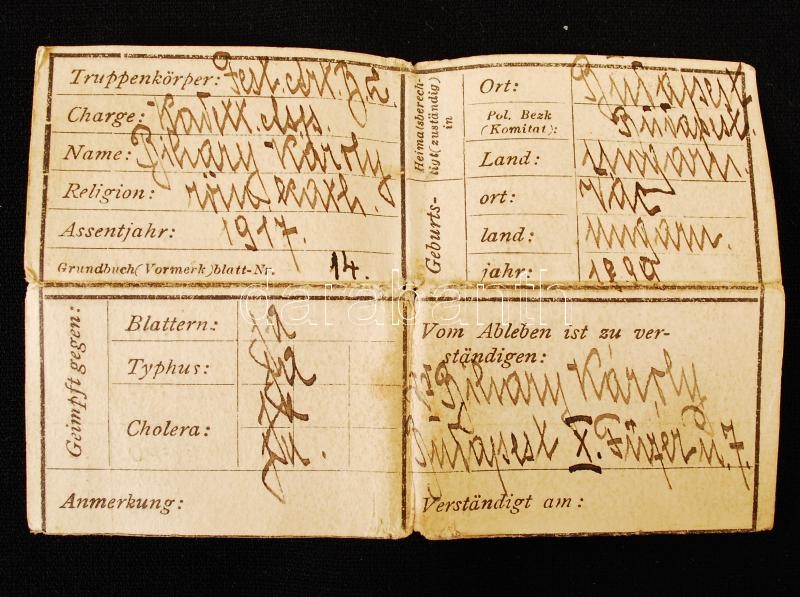 Truppenkörper: Fest. Art. B. 2.
Charge: Kadett. Asp.
Name: Bihary Károly
Religion: röm kath.
Assentjahr: 1917.
Grundbuch(Vormerk)blatt-Nr. 14.
Heimatsberech-
tigt(zuständig)
in
Ort: Budapest
Pol. Bezk
(Komitat): Budapest.
Land: Ungarn.
Geburts-
ort:
land: Ungarn.
jahr: 1899
Geimpft gegen:
Blattern: Ja
Typhus: Ja
Cholera: Ja
Ja.
Anmerkung:
Vom Ableben ist zu ver-
ständigen:
Bihary Károly
Budapest X. Füzér u. 7.
Verständigt am:
darabanth